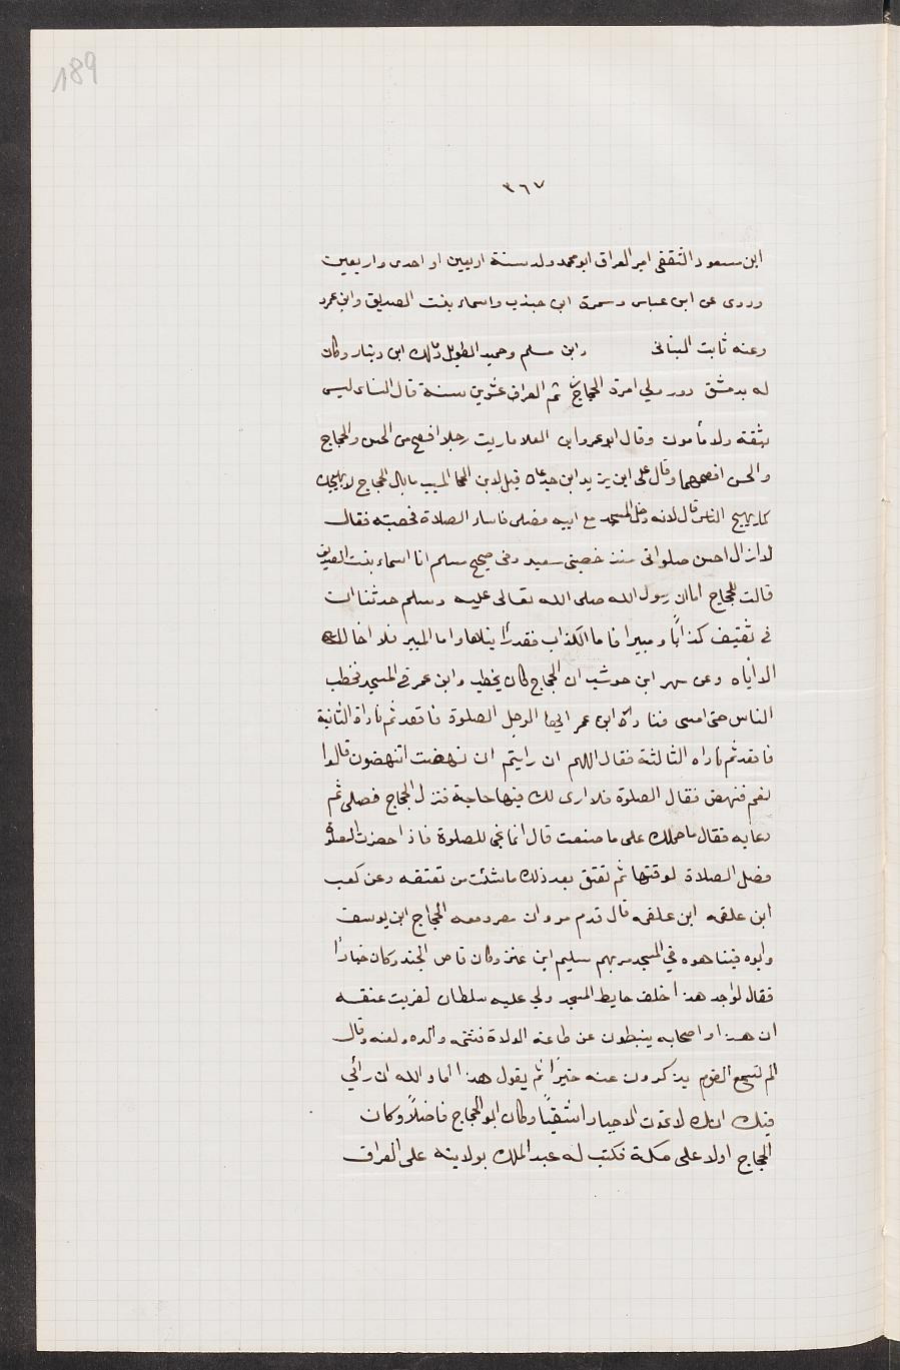 189
٣٦٧
ابن مسعود الثقفى امير العراق ابو محمد ولد سنة اربعين او احدى واربعين
وروى عن ابن عباس وسمرة ابن جندب واسماء بنت الصديق وابن عمر
وعنه ثابت البنانى وابن مسلم وحميد الطويل ومالك ابن دينار وكان
له بدمشق دور ولي امرة الحجاز ثم العراق عشرين سنة قال النساى ليس
بثقة ولا مأمون وقال ابو عمرو ابن العلا ما رايت رجلا افصح من الحسن والحجاج
والحسن افصحهما وقال على ابن يزيد ابن جدعان قيل لابن المسيب ما بال الحجاج لا يهيجك
كما يهيج الناس قال لانه دخل المسجد مع ابيه فصلى فاساء الصلاة فحصبته فقال
لا ازال احسن صلواتى منذ خصبنى سعيد وفى صحيح مسلم انا اسماء بنت الصديق
قالت للحجاج اما ان رسول الله صلى الله تعالى عليه وسلم حدثنا ان
فى ثقيف كذابًا ومبيرا فاما الكذاب فقد رأيناه واما المبير فلا اخالك
الا اياه وعن شهر ابن حوشب ان الحجاج كان يخطب وابن عمر فى المسجد فخطب
الناس حتى امسى فناداه ابن عمر ايها الرجل الصلوة فاقعد ثم ناداه الثانية
فاقعد ثم ناداه الثالثة فقال اللهم ان رايتم ان نهضت اتنهضون قالوا
نعم فنهض فقال الصلوة فلا ارى لك فيها حاجة فنزل الحجاج فصلى ثم
دعا به فقال ما حملك على ما صنعت قال انما نجى للصلوة فاذا حضرت الصلوة
فصل الصلاة لوقتها ثم تفتق بعد ذلك ما شئت من تفتقه وعن كعب
ابن علقمه ابن علقمه قال قدم مروان مصر ومعه الحجاج ابن يوسف
وابوه فبينا هوه في المسجد مر بهم سليم ابن عنز وكان قاص الجند وكان خيارًا
فقال لو اجد هذا خلف حايط المسجد ولي عليه سلطان لضربت عنقه
ان هذا واصحابه يثبطون عن طاعة الولاة فشتمه والده ولعنه وقال
الم تسمع القوم يذكرون عنه خيرًا ثم يقول هذا اما والله ان رائي
فيك انك لا تموت الا جبارا شقيًا وكان ابو الحجاج فاضلاً وكان
الحجاج اولا على مكة فكتب له عبد الملك بولايته على العراق